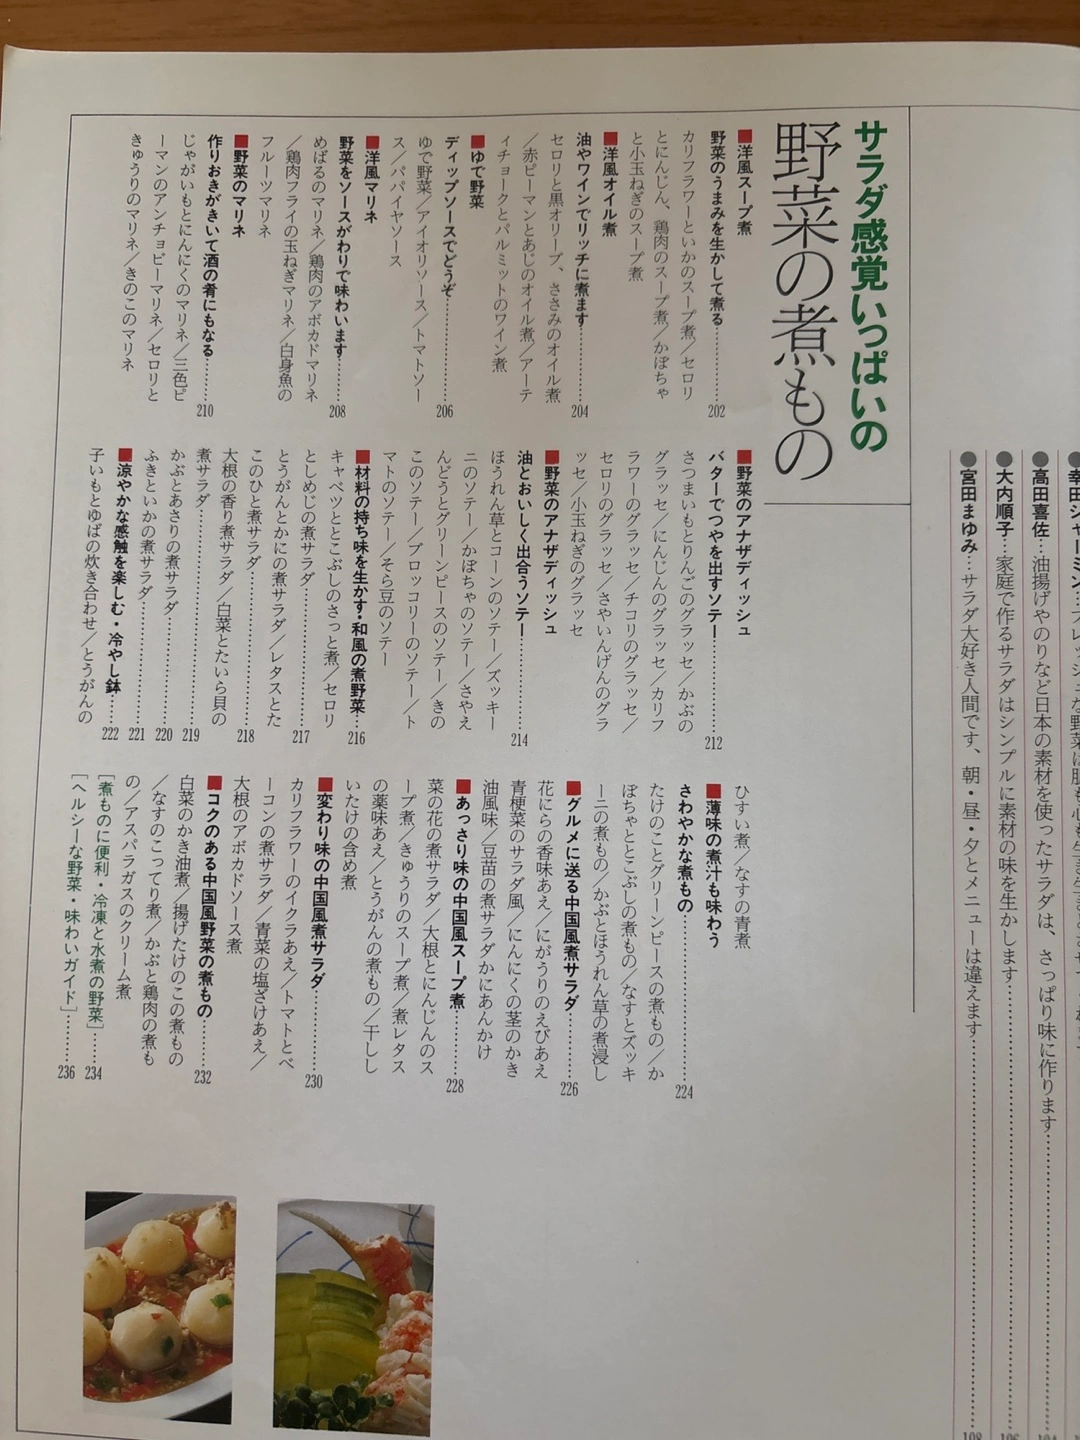 高田喜佐…油揚げやのりなど日本の素材を使ったサラダは、さっぱり味に作ります
大内順子…家庭で作るサラダはシンプルに素材の味を生かします
宮田まゆみ…サラダ大好き人間です、朝・昼・夕とメニューは違えます
108
サラダ感覚いっぱいの
野菜の煮もの
■洋風スープ煮
野菜のうまみを生かして煮る……202
カリフラワーといかのスープ煮／セロリ
とにんじん、鶏肉のスープ煮／かぼちゃ
と小玉ねぎのスープ煮
■洋風オイル煮
油やワインでリッチに煮ます……204
セロリと黒オリーブ、ささみのオイル煮
／赤ピーマンとあじのオイル煮／アーテ
ィチョークとパルミットのワイン煮
■ゆで野菜
ディップソースでどうぞ……206
ゆで野菜／アイオリソース／トマトソー
ス／パパイヤソース
■洋風マリネ
野菜をソースがわりで味わいます……208
めばるのマリネ／鶏肉のアボカドマリネ
／鶏肉フライの玉ねぎマリネ／白身魚の
フルーツマリネ
■野菜のマリネ
作りおきがきいて酒の肴にもなる……210
じゃがいもとにんにくのマリネ／三色ピ
ーマンのアンチョビーマリネ／セロリと
きゅうりのマリネ／きのこのマリネ
■野菜のアナザディッシュ
バターでつやを出すソテー……212
さつまいもとりんごのグラッセ／かぶの
グラッセ／にんじんのグラッセ／カリフ
ラワーのグラッセ／チコリのグラッセ／
セロリのグラッセ／さやいんげんのグラ
ッセ／小玉ねぎのグラッセ
■野菜のアナザディッシュ
油とおいしく出合うソテー……214
ほうれん草とコーンのソテー／ズッキー
ニのソテー／かぼちゃのソテー／さやえ
んどうとグリーンピースのソテー／きの
このソテー／ブロッコリーのソテー／ト
マトのソテー／そら豆のソテー
■材料の持ち味を生かす・和風の煮野菜…216
キャベツととこぶしのさっと煮／セロリ
としめじの煮サラダ……217
とうがんとかにの煮サラダ／レタスとた
このひと煮サラダ……218
大根の香り煮サラダ／白菜とたいら貝の
煮サラダ……219
かぶとあさりの煮サラダ……220
ふきといかの煮サラダ……221
■涼やかな感触を楽しむ・冷やし鉢……222
子いもとゆばの炊き合わせ／とうがんの
ひすい煮／なすの青煮
■薄味の煮汁も味わう
さわやかな煮もの……224
たけのことグリーンピースの煮もの／か
ぼちゃととこぶしの煮もの／なすとズッキ
ーニの煮もの／かぶとほうれん草の煮浸し
■グルメに送る中国風煮サラダ……226
花にらの香味あえ／にがうりのえびあえ
青梗菜のサラダ風／にんにくの茎のかき
油風味／豆苗の煮サラダかにあんかけ
■あっさり味の中国風スープ煮……228
菜の花の煮サラダ／大根とにんじんのス
ープ煮／きゅうりのスープ煮／煮レタス
の薬味あえ／とうがんの煮もの／干しし
いたけの含め煮
■変わり味の中国風煮サラダ……230
カリフラワーのイクラあえ／トマトとベ
ーコンの煮サラダ／青菜の塩ざけあえ／
大根のアボカドソース煮
■コクのある中国風野菜の煮もの……232
白菜のかき油煮／揚げたけのこの煮もの
／なすのこってり煮／かぶと鶏肉の煮も
の／アスパラガスのクリーム煮
［煮ものに便利・冷凍と水煮の野菜］……234
［ヘルシーな野菜・味わいガイド］……236